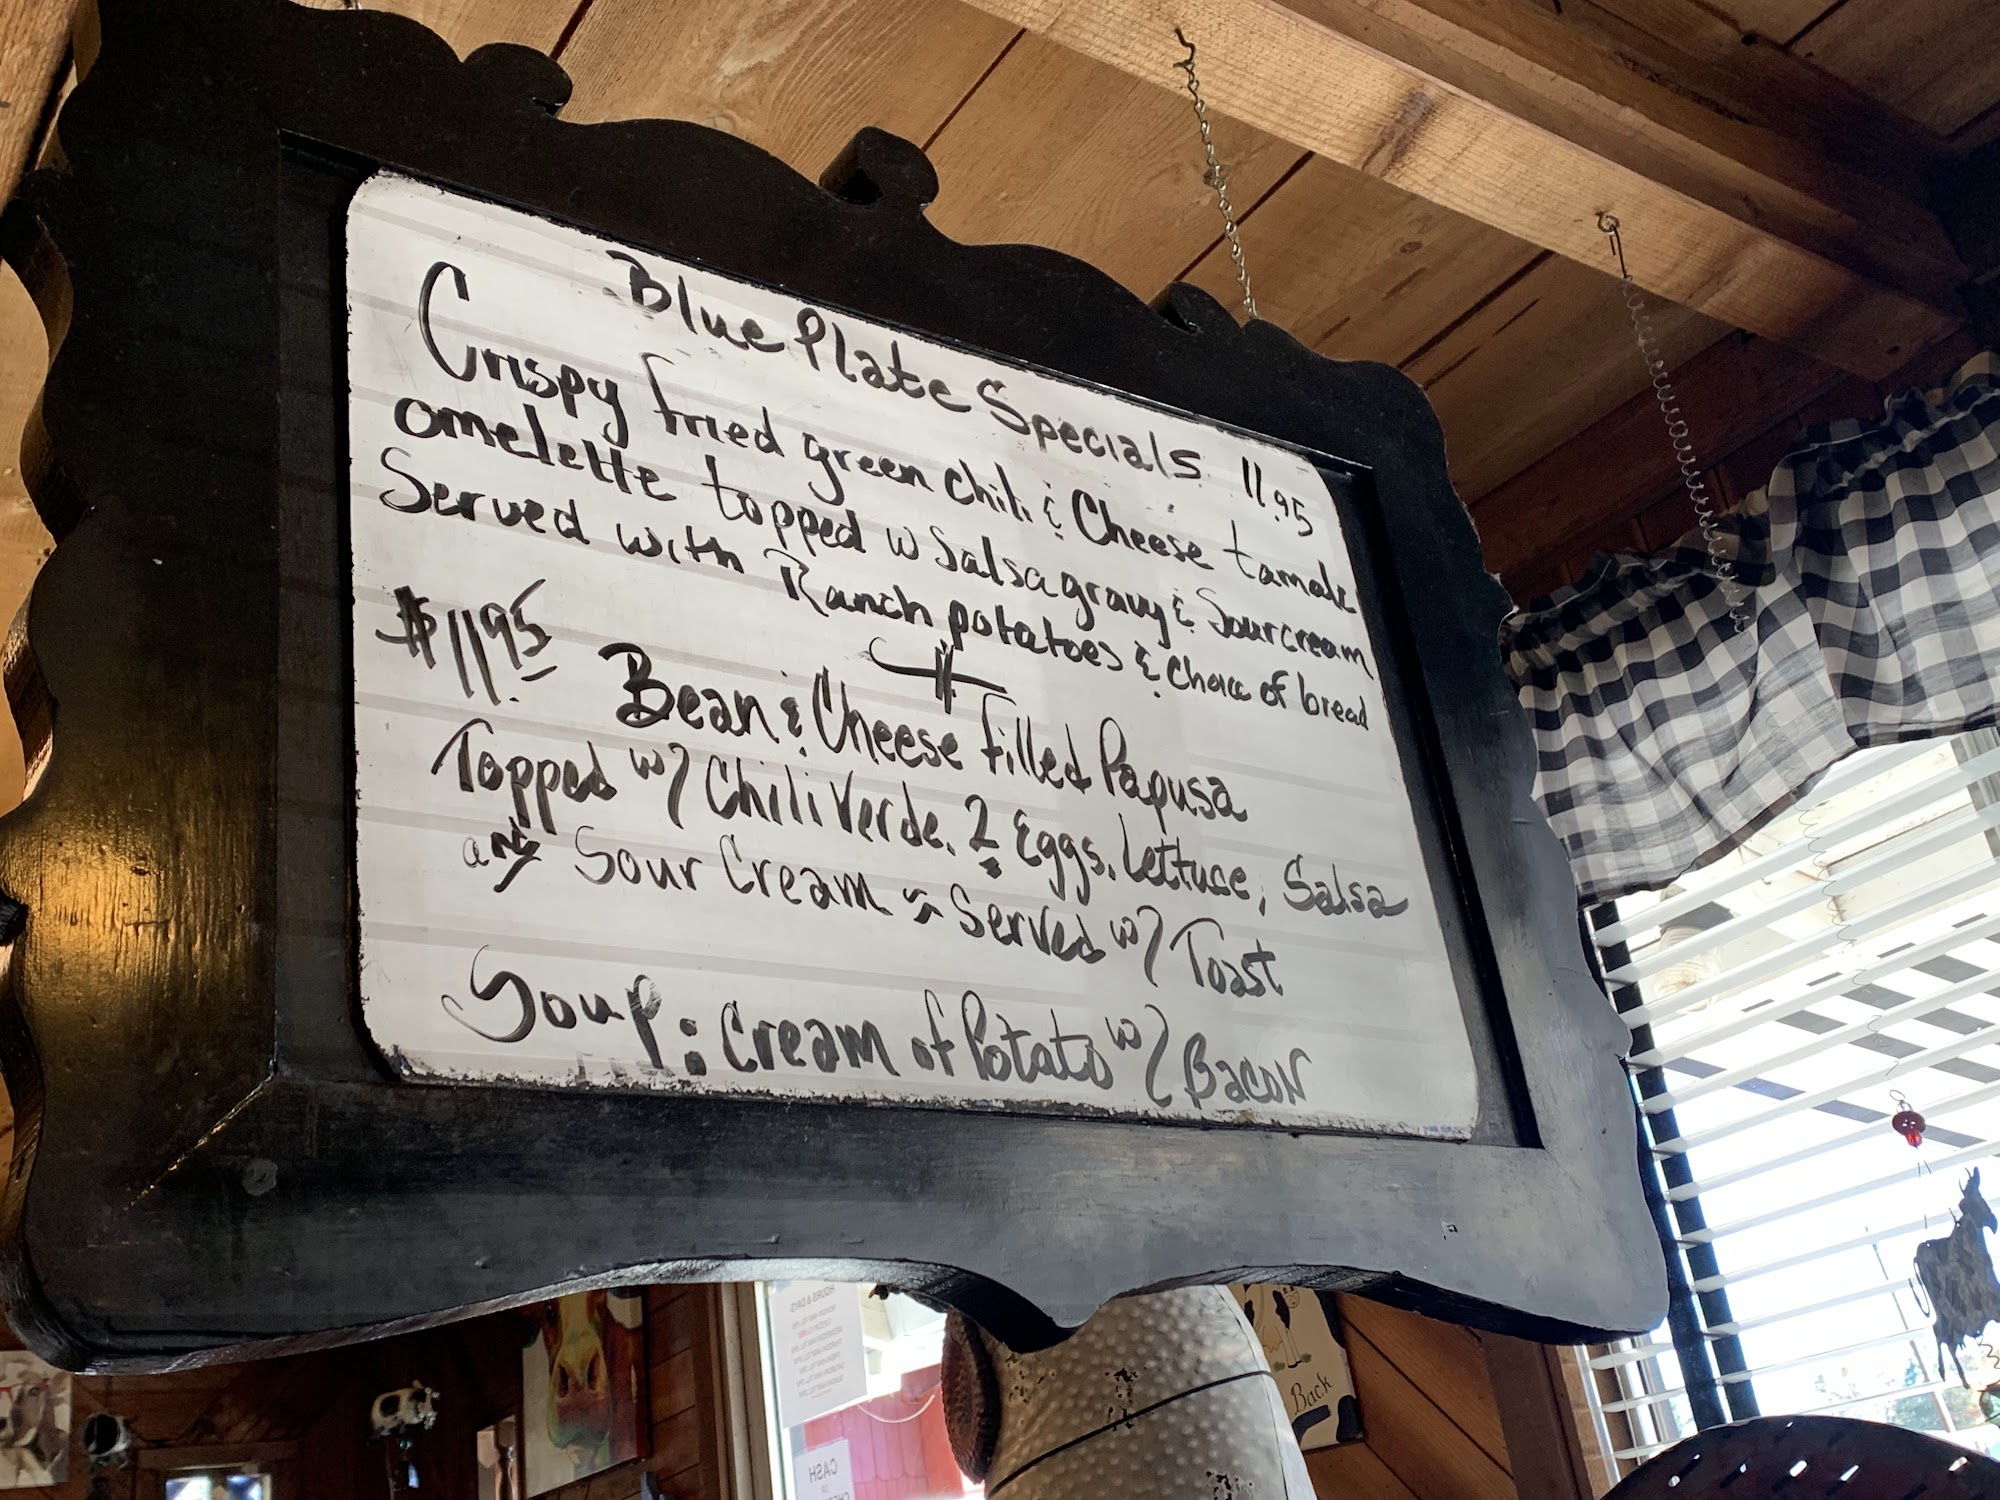 Blue Plate Specials 11.95
Crispy fried green chili & Cheese tamale
omelette topped w Salsa gravy & Sour cream
Served with Ranch potatoes & choice of bread
$11.95 Bean & Cheese Filled Papusa
Topped w/ Chili Verde, 2 Eggs, Lettuce, Salsa
and Sour Cream ~ Served w/ Toast
Soup: Cream of Potato w/ Bacon
HOURS & DAYS
CASH
Back